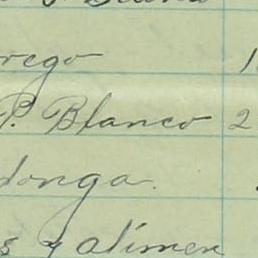 rego 1
P. Blanco 2
donga.
s y alimen